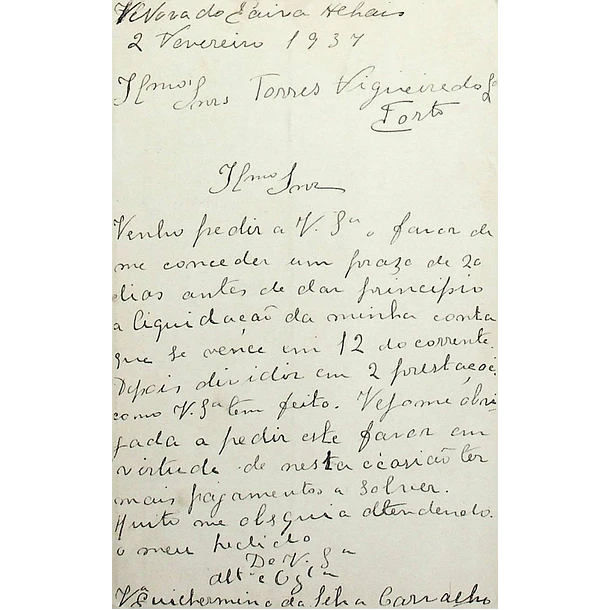 V. Nova do Paiva Athais
2 Fevereiro 1937
Ilmos Snrs Torres Figueiredo &
Porto
Ilmo Snr
Venho pedir a V. Sª o favor de
me conceder um prazo de 20
dias antes de dar principio
a liquidação da minha conta
que se vence em 12 do corrente.
Depois dividir em 2 prestações
como V. Sª tem feito. Vejome obri-
gada a pedir este favor em
virtude de nesta ocasião ter
mais pagamentos a solver.
Muito me obsquia attendendo
o meu pedido
De V. Sª
attª e Obgda
Vª Guilhermina da Silva Carvalho